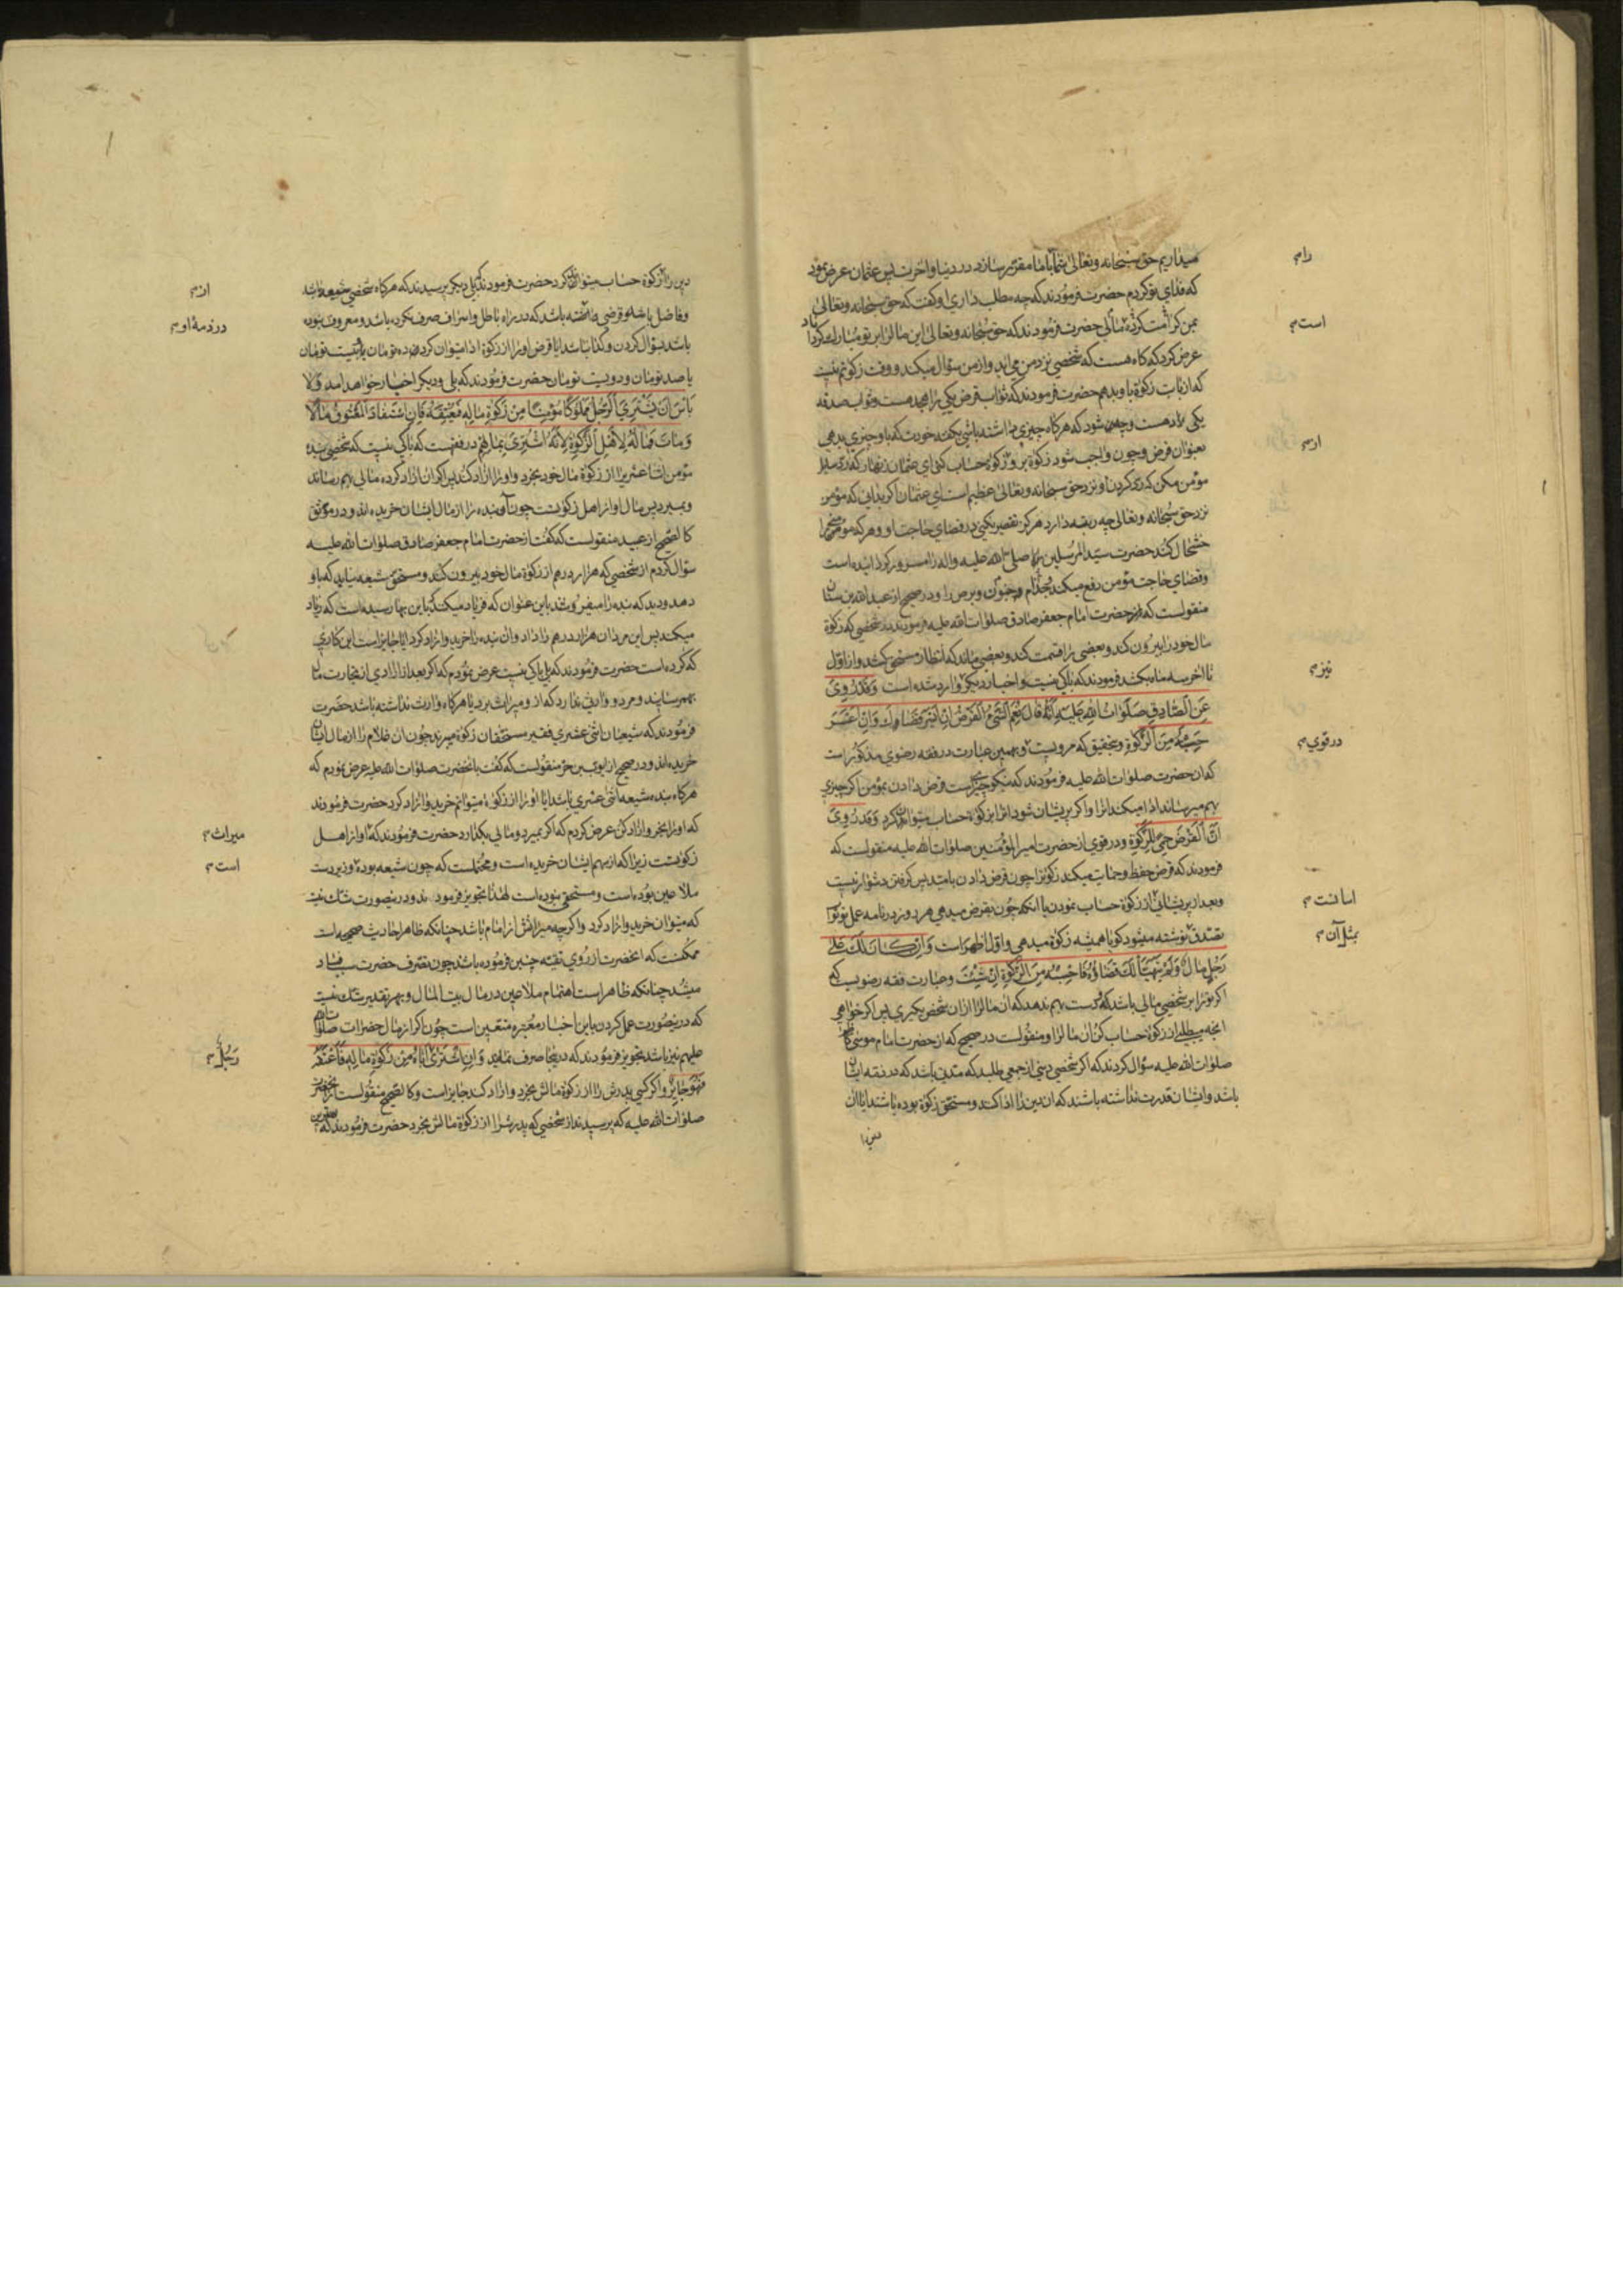 میداریم حق سبحانه و تعالی شما را با ما مقرر سازد در دنیا و آخرت پس عثمان عرض نمود
که فدای تو کردم حضرت فرمودند که چه مطلب داری او کفت که حق سبحانه و تعالی
بمن کرامت کرده مالی حضرت فرمودند که حق سبحانه و تعالی این مال را بر تو مبارک کرداناد
عرض کرد که کاه هست که شخصی نزد من می اید و از من سؤال میکند و وقت زکوتم نیست
که از بابت زکوة باو بدهم حضرت فرمودند که ثواب قرض یکی را هجده است و ثواب صدقه
یکی را ده است و چه میشود که هرکاه چیزی داشته باشی بکفته خودت که باو چیزی بدهی
بعنوان قرض و چون واجب شود زکوة بر تو از زکوة حساب کنی ای عثمان زنهار که رد سایل
مؤمن مکن که رد کردن او نزد حق سبحانه و تعالی عظیم است ای عثمان اکر بدانی که مؤمن
نزد حق سبحانه و تعالی چه رتبه دارد هرکز تقصیر نکنی در قضای حاجت او و هرکه مومنی را
خشحال کند حضرت سید المرسلین را صلی الله علیه و اله را مسرور کردانیده است
و قضای حاجت مؤمن رفع میکند جذام و جنون و برص را و در صحیح از عبد الله بن سنان
منقولست که از حضرت امام جعفر صادق صلوات الله علیه فرمودند در شخصی که زکوة
مال خود را بیرون کند و بعضی را قسمت کند و بعضی ماند که انتظار مستحق کشد و از اول
تا اخر سه ماه بکشد فرمودند که باکی نیست و اخبار دیکر وارد شده است وَقَدْ رُوِیَ
عَنِ الصَّادِقِ صَلَوَاتُ اللهِ عَلَیْهِ اَنَّهُ قَالَ نِعْمَ الشَّیْءُ الْقَرْضُ اِنْ اَیْسَرَ قَضَاکَ وَاِنْ اَعْسَرَ
حَسِبْتَهُ مِنَ الزَّکٰوةِ و بتحقیق که مرویست و بهمین عبارت در فقه رضوی مذکور است
که ان حضرت صلوات الله علیه فرمودند که نیکو چیزیست قرض دادن بمؤمن اکر چیزی
بهم میرساند ادا میکند انرا و اکر پریشان شود انرا بزکوة حساب میتوان کرد وَقَدْ رُوِیَ
اَنَّ الْقَرْضَ حِمًی لِلزَّکٰوةِ و در قوی از حضرت امیر المؤمنین صلوات الله علیه منقولست که
فرمودند که قرض حفظ و حمایت میکند زکوة را چون قرض دادن بامید پس کرفتن دشوار نیست
و بعد از پریشانی از زکوة حساب نمودن یا انکه چون بقرض میدهی هر روز در نامه عمل تو ثواب
تصدق نوشته میشود کویا همیشه زکوة میدهی و اول اظهر است وَاِنْ کَانَ لَکَ عَلَی
رَجُلٍ مَالٌ وَلَمْ یَتَهَیَّأْ لَکَ قَضَاؤُهُ فَاحْسِبْهُ مِنَ الزَّکٰوةِ اِنْ شِئْتَ و عبارت فقه رضویست که
اکر ترا بر شخصی مالی باشد که دست بهم ندهد که ان مال را از ان شخص بکیری پس اکر خواهی
انچه میطلبی از زکوة حساب کن ان مال را و منقولست در صحیح که از حضرت امام موسی کاظم
صلوات الله علیه سؤال کردند که اکر شخصی دینی از جمعی طلبد که مدتی باشد که در ذمه ایشان
باشد و ایشان قدرت نداشته باشند که ان دین را ادا کنند و مستحق زکوة بوده باشند ایا ان
دین را
را م
است م
از م
نیز م
در قوی م
اسانست م
بمثل آن م
دین را از زکوة حساب میتوان کرد حضرت فرمودند که بلی دیکر پرسیدند که هرکاه شخصی شیعه باشد
و فاضل باشد و قرضی داشته باشد که در راه باطل و اسراف صرف نکرده باشد و معروف نبوده
باشد بسؤال کردن و کدا نباشد ایا قرض او را از زکوة ادا میتوان کرد ده تومان یا بیست تومان
یا صد تومان و دویست تومان حضرت فرمودند که بلی و دیکر اخبار خواهد امد وَلَا
بَاْسَ اَنْ یَشْتَرِیَ الرَّجُلُ مَمْلُوکًا مُؤْمِنًا مِنْ زَکٰوةِ مَالِهِ فَیُعْتِقَهُ فَاِنِ اسْتَفَادَ الْمُعْتُوقُ مَالًا
وَمَاتَ فَمَالُهُ لِاَهْلِ الزَّکٰوةِ لِاَنَّهُ اشْتُرِیَ بِمَالِهِمْ در فقهست که باکی نیست که شخصی بنده
مؤمن اثنا عشری را از زکوة مال خود بخرد و او را ازاد کند پس اکر ان ازاد کرده مالی بهم رساند
و بمیرد پس مال او از اهل زکوتست چون آن بنده را از مال ایشان خریده اند و در موثق
کالصحیح از عبید منقولست که کفت از حضرت امام جعفر صادق صلوات الله علیه
سؤال کردم از شخصی که هزار درهم از زکوة مال خود بیرون کند و مستحق شیعه نیابد که باو
دهد و دید که بنده را میفروشند باین عنوان که فریاد میکنند که باین بها رسیده است که زیاد
میکند پس این مرد ان هزار درهم را داد و ان بنده را خرید و ازاد کرد ایا جایز است این کاری
که کرده است حضرت فرمودند که بلی باکی نیست عرض نمودم که اکر بعد از ازادی از تجارت مال
بهم رسانید و مرد و وارثی ندارد که از و میراث برد یا هرکاه وارث نداشته باشد حضرت
فرمودند که شیعیان اثنی عشری فقیر مستحقان زکوة میبرند چون ان غلام را از مال ایشان
خریده اند و در صحیح از ایوب بن حر منقولست که کفت بانحضرت صلوات الله علیه عرض نمودم که
هرکاه بنده شیعه اثنی عشری باشد ایا او را از زکوة میتوانم خرید و ازاد کرد حضرت فرمودند
که او را بخر و ازاد کن عرض کردم که اکر بمیرد و مالی بکذارد حضرت فرمودند که او از اهل
زکوتست زیرا که از سهم ایشان خریده است و محتملست که چون شیعه بوده و زیر دست
ملاعین بوده است و مستحق نبوده است لهذا تجویز فرمودند و درینصورت شک نیست
که میتوان خرید و ازاد کرد و اکرچه میراثش از امام باشد چنانکه ظاهر احادیث صحیحه است
ممکنست که انحضرت از روی تقیه چنین فرموده باشد چون تصرف حضرت سبب فساد
میشد چنانکه ظاهر است اهتمام ملاعین در مال بیت المال و بهر تقدیر شک نیست
که درینصورت عمل کردن باین اخبار معتبره متعین است چون اکر از مال حضرات صلوات الله
علیهم نیز باشد تجویز فرمودند که در اینجا صرف نمایند وَاِنِ اشْتَرٰی اَبَاهُ مِنْ زَکٰوةِ مَالِهِ فَاَعْتَقَهُ
فَهُوَ جَایِزٌ و اکر کسی پدرش را از زکوة مالش بخرد و ازاد کند جایز است و کالصحیح منقولست از انحضرت
صلوات الله علیه که پرسیدند از شخصی که پدرش را از زکوة مالش بخرد حضرت فرمودند که
از م
در ذمهٔ او م
میراث م
است م
رَجُلٌ م